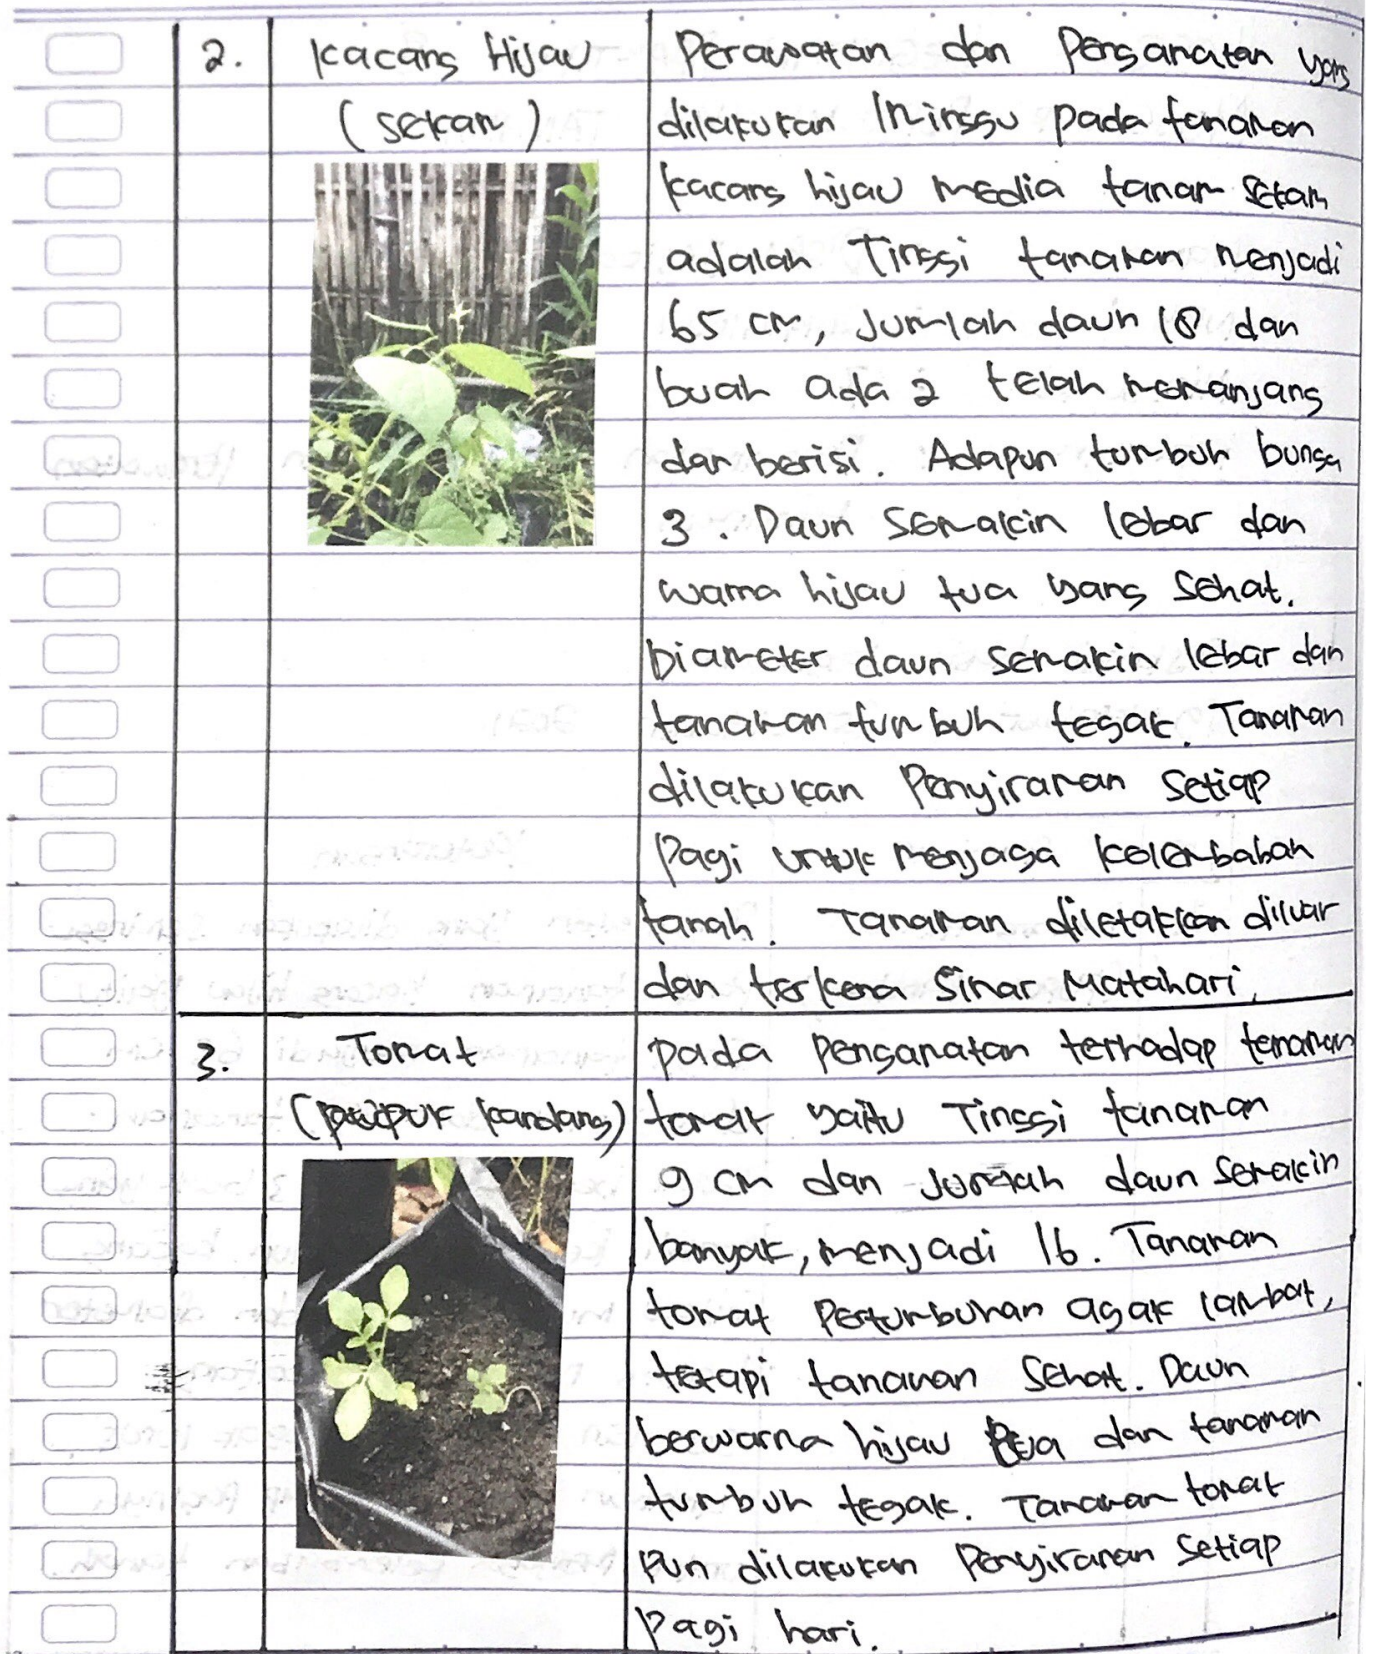 2.
Kacang Hijau
(sekam)
Perawatan dan Pengamatan yang
dilakukan Minggu pada tanaman
kacang hijau media tanam sekam
adalah Tinggi tanaman menjadi
65 cm, Jumlah daun 18 dan
buah ada 2 telah memanjang
dan berisi. Adapun tumbuh bunga
3. Daun semakin lebar dan
warna hijau tua yang sehat.
Diameter daun semakin lebar dan
tanaman tumbuh tegak. Tanaman
dilakukan Penyiraman Setiap
Pagi untuk menjaga kelembaban
tanah. Tanaman diletakkan diluar
dan terkena Sinar Matahari.
3.
Tomat
(pupuk kandang)
pada Pengamatan terhadap tanaman
tomat yaitu Tinggi tanaman
9 cm dan Jumlah daun semakin
banyak, menjadi 16. Tanaman
tomat Pertumbuhan agak lambat,
tetapi tanaman Sehat. Daun
berwarna hijau tua dan tanaman
tumbuh tegak. Tanaman tomat
pun dilakukan Penyiraman Setiap
Pagi hari.